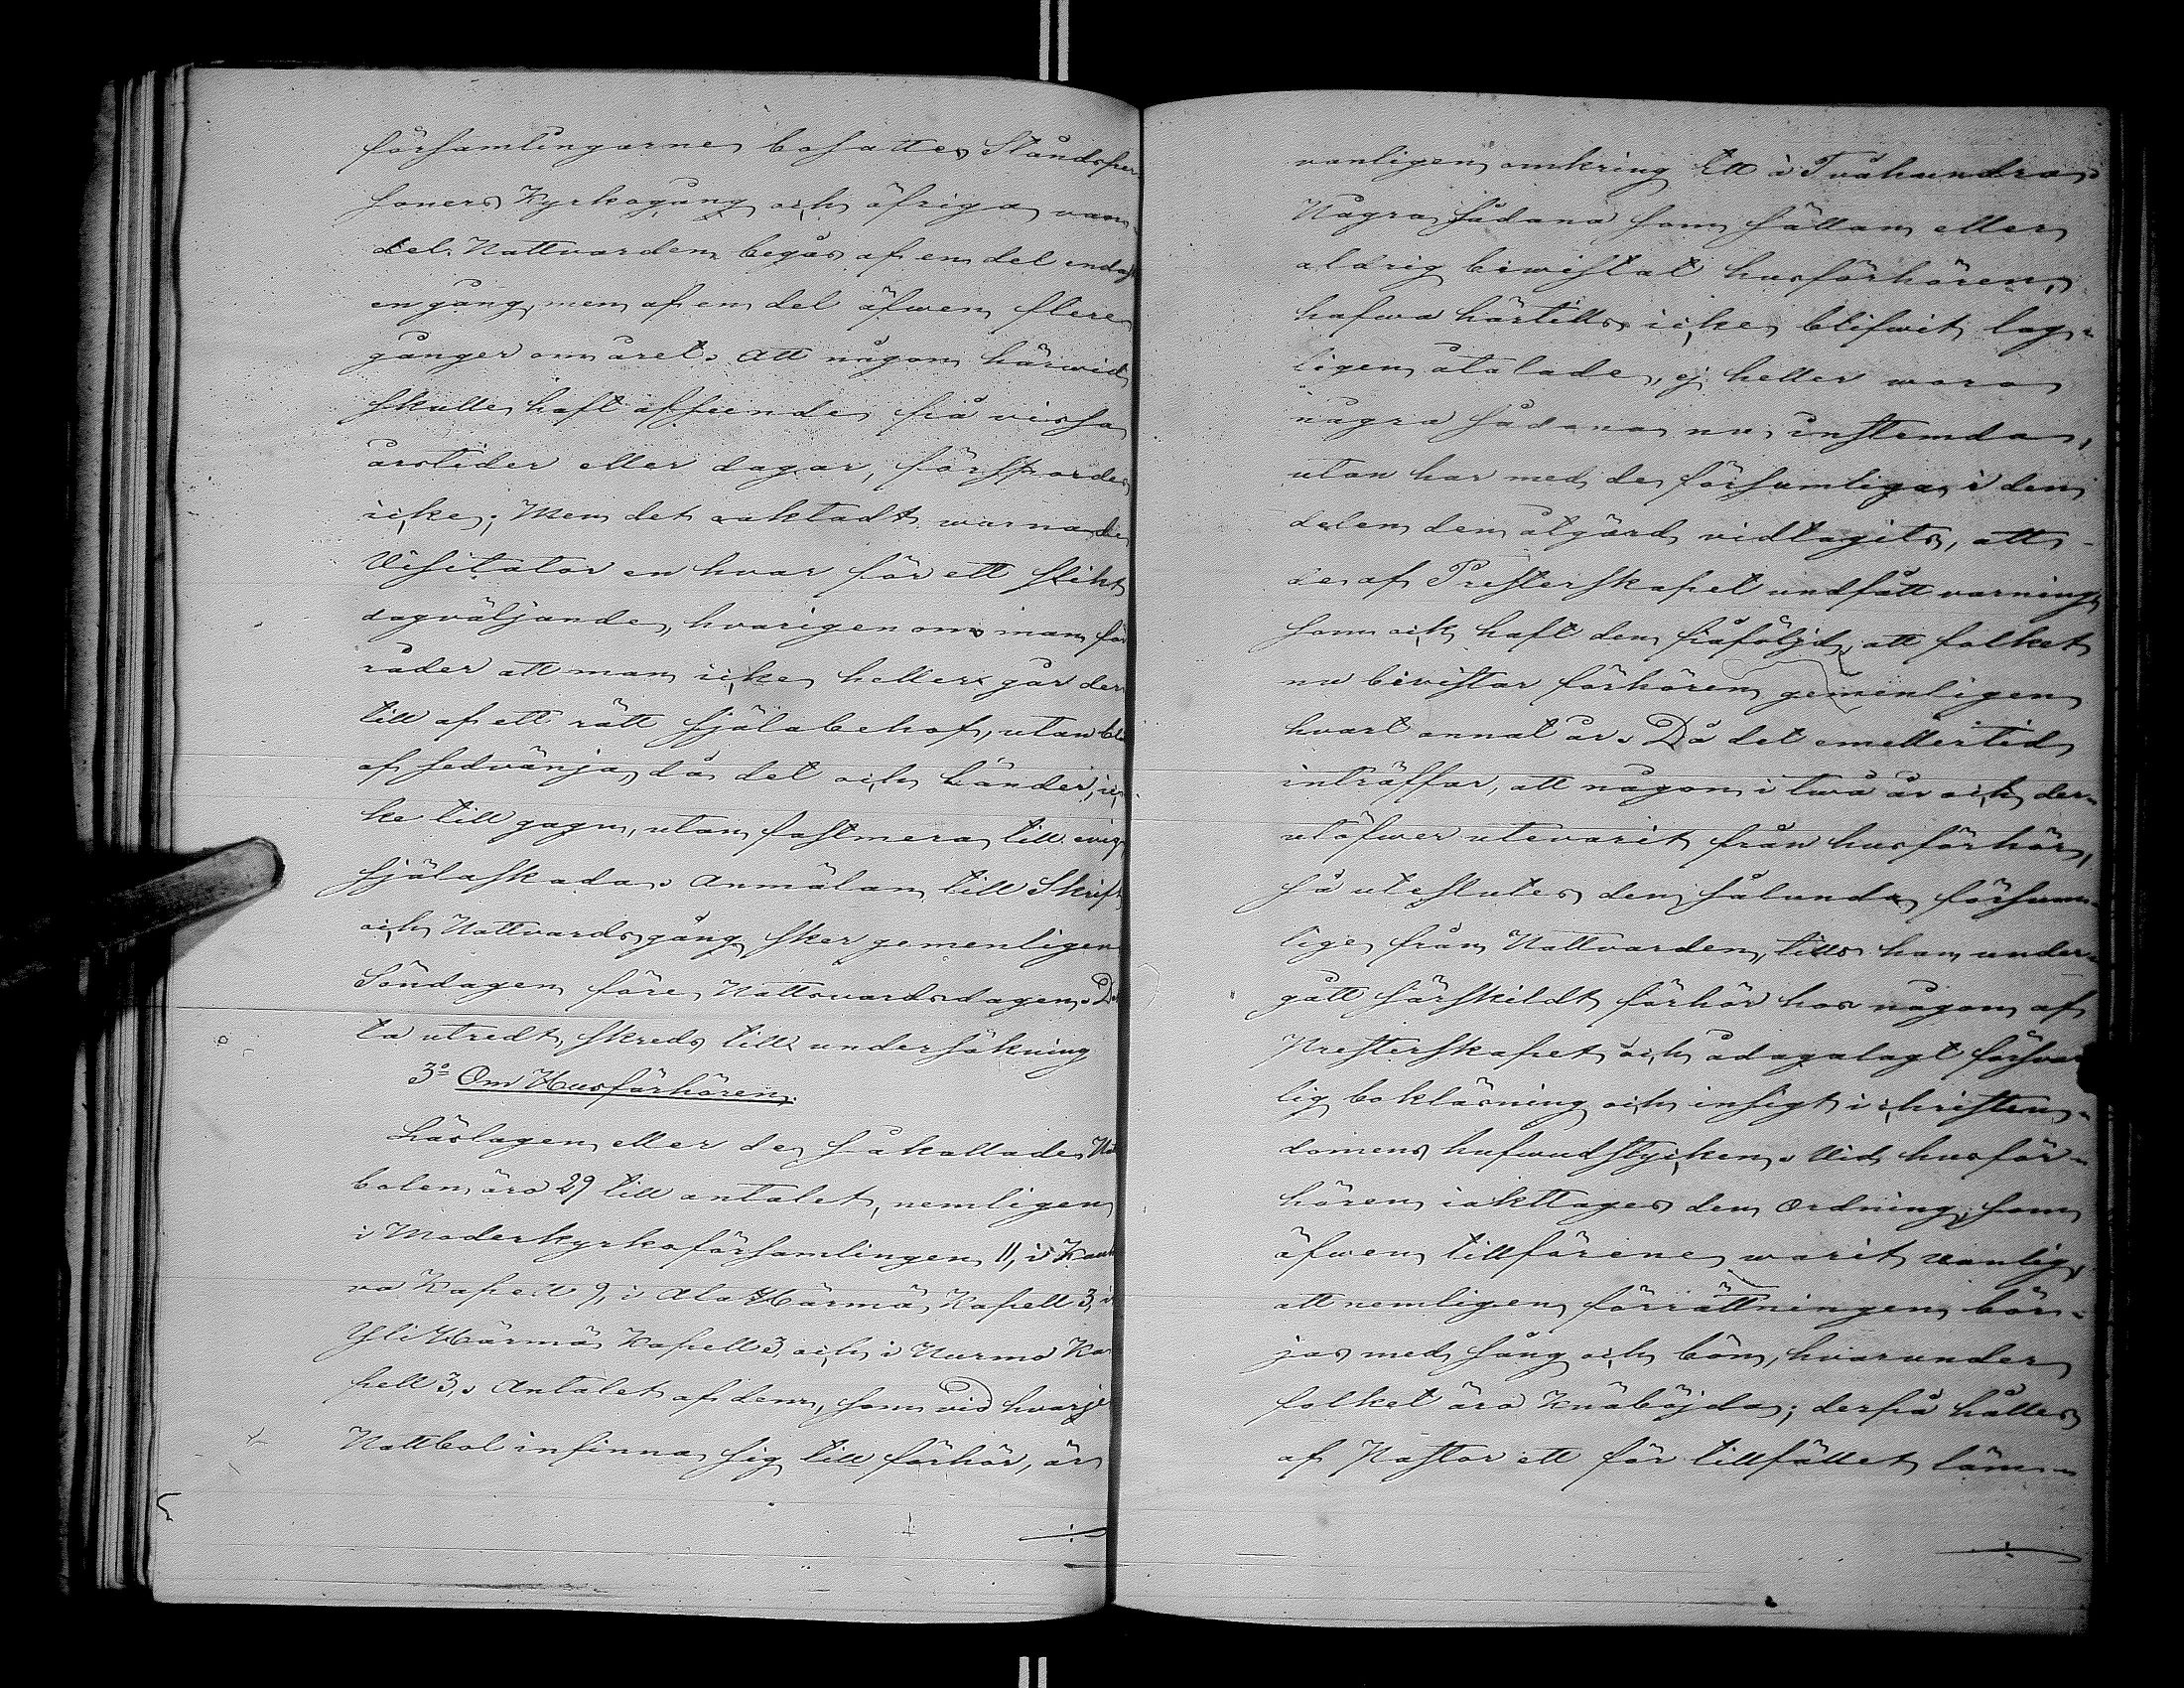 församlingarne bosatte Ståndsper-
soners Kyrkogång och öfriga van-
del. Nattvarden begås af en del endast
en gång, men af en del äfwen flere
gånger om året. Att någon härwid
skulle haft afseende på vissa
årstider eller dagar, försportes
icke; Men det oaktadt warnade
Visitator en hvar för ett slikt
dagväljande, hvarigenom man för-
råder att man icke heller går der-
till af ett rätt själabehof, utan blott
af sedvänja, då det och länder, ic-
ke till gagn, utan fastmera till evig
själaskada. Anmälan till Skrift
och Nattvardsgång sker gemenligen
Söndagen före Nattvardsdagen. Det-
ta utredt, skreds till undersökning
3o Om Husförhören.
Läslagen eller de så kallade Natt-
bolen äro 29 till antalet, nemligen
i Moderkyrkoförsamlingen 11, i Kauha-
va Kapell 9, i Ala Härmä Kapell 3, i
Yli Härmä Kapell 3, och i Nurmo Ka-
pell 3. Antalet af dem, som vid hvarje
Nattbol infinna sig till förhör, är
vanligen omkring Ett à Tvåhundra.
Några sådana som sällan eller
aldrig biwistat husförhören,
hafwa härtills icke blifwit lag-
ligen åtalade, ej heller woro
några sådana nu instemda,
utan har med de försumliga i den
delen den åtgärd vidtagits, att
de af Presterskapet undfått varning,
som ock haft den påföljd, att folket
nu bivistar förhören gemenligen
hvart annat år. Då det emellertid
inträffar, att någon i twå år och der-
utöfwer utevarit från husförhör,
så uteslutes den sålunda försum-
lige från Nattvarden, tills han under-
gått särskildt förhör hos någon af
Presterskapet och ådagalagt försvar-
lig boklärning och insigt i christen-
domens hufwudstycken. Vid husför-
hören iakttages den Ordning, som
äfwen tillförene warit vanlig,
att nemligen förrättningen bör-
jas med sång och bön, hvarunder
folket äro Knäböjda; derpå hålles
af Pastor ett för tillfället läm-